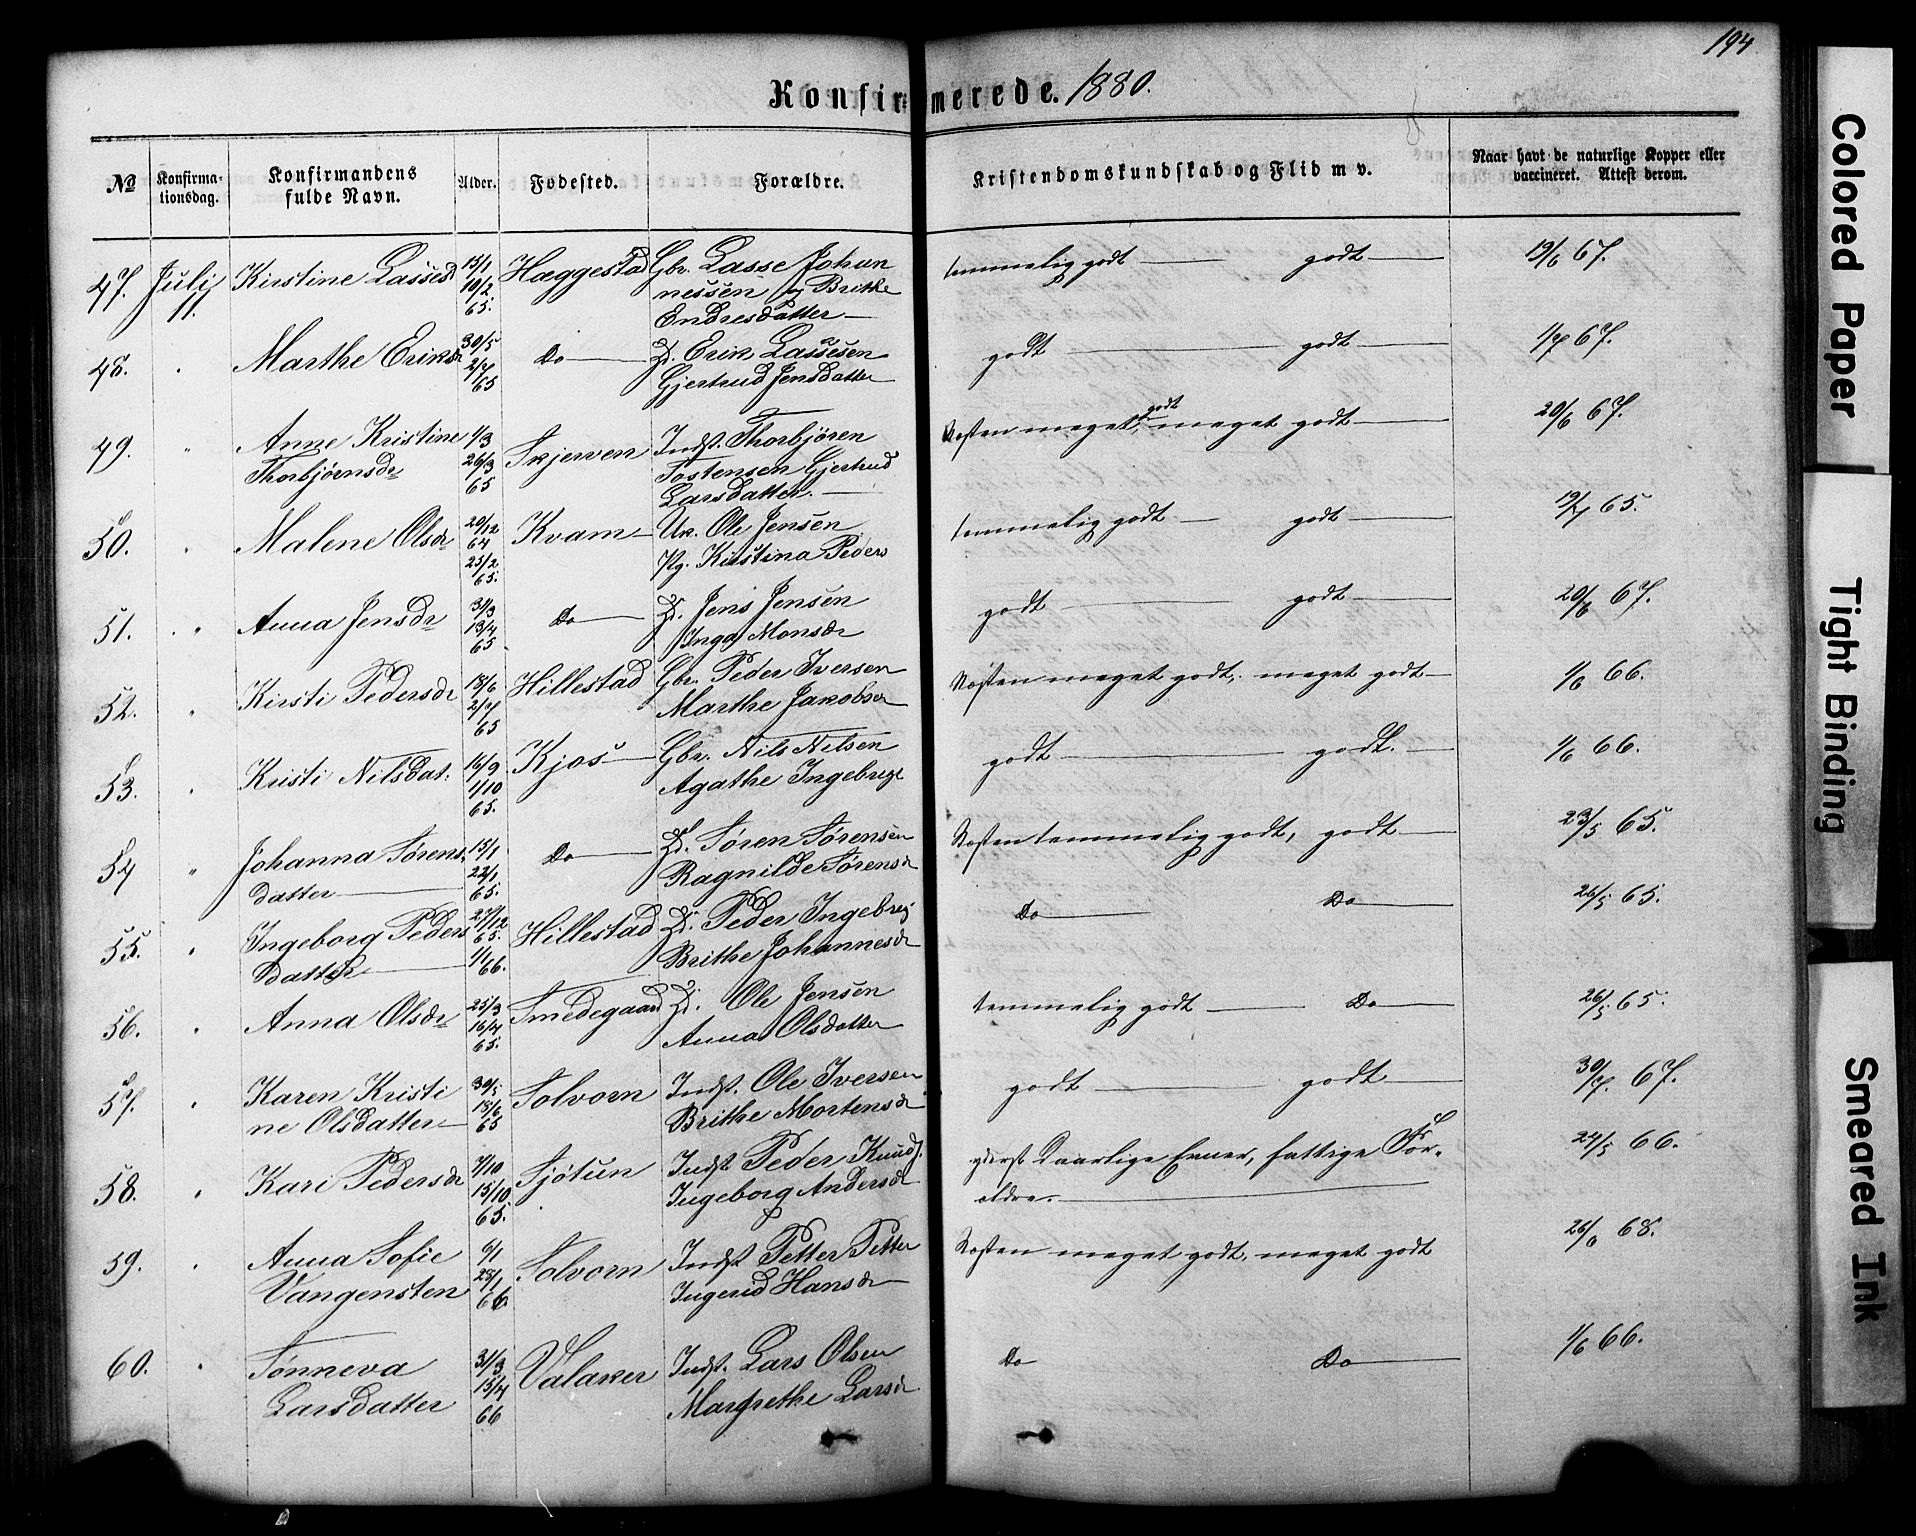 194
Konfirmerede. 1880.
No Konfirmationsdag. Konfirmandens fulde Navn. Alder. Fodested. Forældre. Kristendomskundskab og Flid m v. Naar havt de naturlige Kopper eller vaccineret. Attest derom.
47. Juli 11. Kirstine Lassesd 15/1 10/2 65. Hæggestad Gbr. Lasse Johan
nessen og Brithe
Endresdatter
temmelig godt godt 19/6 67.
48. " Marthe Eriksdr 30/5 2/7 65 Do D. Erik Lassesen
Gjertrud Jensdatter
godt godt 1/7 67.
49. " Anne Kristine
Thorbjørnsdr
1/3 26/3 65 Skjerven Indst. Thorbjören
Tostensen Gjertrud
Larsdatter.
Næsten meget godt, meget godt 20/6 67.
50. " Malene Olsdr 20/12 64 25/2 65. Kvam Uk. Ole Jensen
Pg. Kirstina Peders
temmelig godt godt 19/7 65.
51. " Anna Jensdr 31/3 13/4 65 Do D. Jens Jensen
Inga Monsdr
godt godt 20/6 67.
52. " Kirsti Pedersdr 18/6 2/7 65 Hillestad Gbr. Peder Iversen
Marthe Jakobsdr
Næsten meget godt, meget godt 1/6 66.
53. " Kristi Nilsdat. 16/9 1/10 65. Kjos Gbr. Nils Nilsen
Agathe Ingebrigt
godt godt. 1/6 66.
54 " Johanna Sørens
datter
15/1 22/1 65. Do D. Søren Sørensen
Ragnilde Sørensdr
Næsten temmelig godt, godt 23/5 65.
55. " Ingeborg Peders
datter
27/12 65. 1/1 66. Hillestad D. Peder Ingebrig
Brithe Johannesdr
Do Do 26/5 65.
56. " Anna Olsdr 25/3 16/4 65. Smedegaard D. Ole Jensen
Anna Olsdatter
temmelig godt Do 26/5 65.
57. " Karen Kristi
ne Olsdatter
30/5 18/6 65 Solvorn Indst. Ole Iversen
Brithe Mortensdr
godt godt 30/7. 67.
58. " Kari Pedersdr 7/10 15/10. 65. Sjøtun Indst. Peder Knuds.
Ingeborg Andersdr
yderst daarlige Evner, fattige For-
ældre. 24/5 66.
59. " Anna Sofie
Vangensten
6/1 28/1 66. Solvorn Indst Petter Petter
Ingerid Hansdr
Næsten meget godt, meget godt 26/6 68.
60. " Sønneva
Larsdatter
31/3 15/4 66 Valaker Indst. Lars Olsen
Margrethe Larsdr
Do Do 1/6 66.
Colored Paper
Tight Binding
Smeared Ink